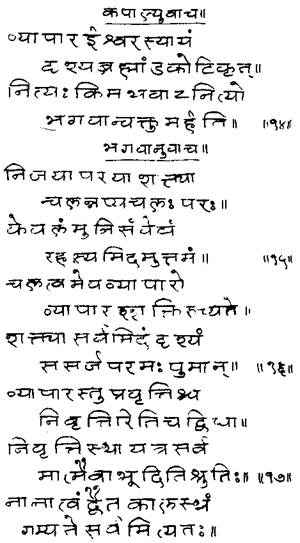 कपाल्युवाच॥
व्यापार ईश्वरस्यायं
दृश्यब्रह्मांडकोटिकृत्॥
नित्यः किमथवाऽनित्यो
भगवान्वक्तुमर्हति॥ ॥१४॥
भगवानुवाच॥
निजयापरयाशक्त्या
चलन्नप्यचलः परः॥
केवलं मुनिसंवेद्यं
रहस्यमिदमुत्तमं॥ ॥१५॥
चलत्वमेवव्यापारो
व्यापारशक्तिरुच्यते॥
शक्त्या सर्वमिदं दृश्यं
ससर्जपरमः पुमान्॥ ॥१६॥
व्यापारस्तु प्रवृत्तिश्च
निवृत्तिरेतिचद्विधा॥
निवृत्तिस्था यत्रसर्व
मात्मैवाभूदितिश्रुतिः॥ ॥१७॥
नानात्वं द्वैतकालस्थं
गम्यते सर्वमित्यतः॥